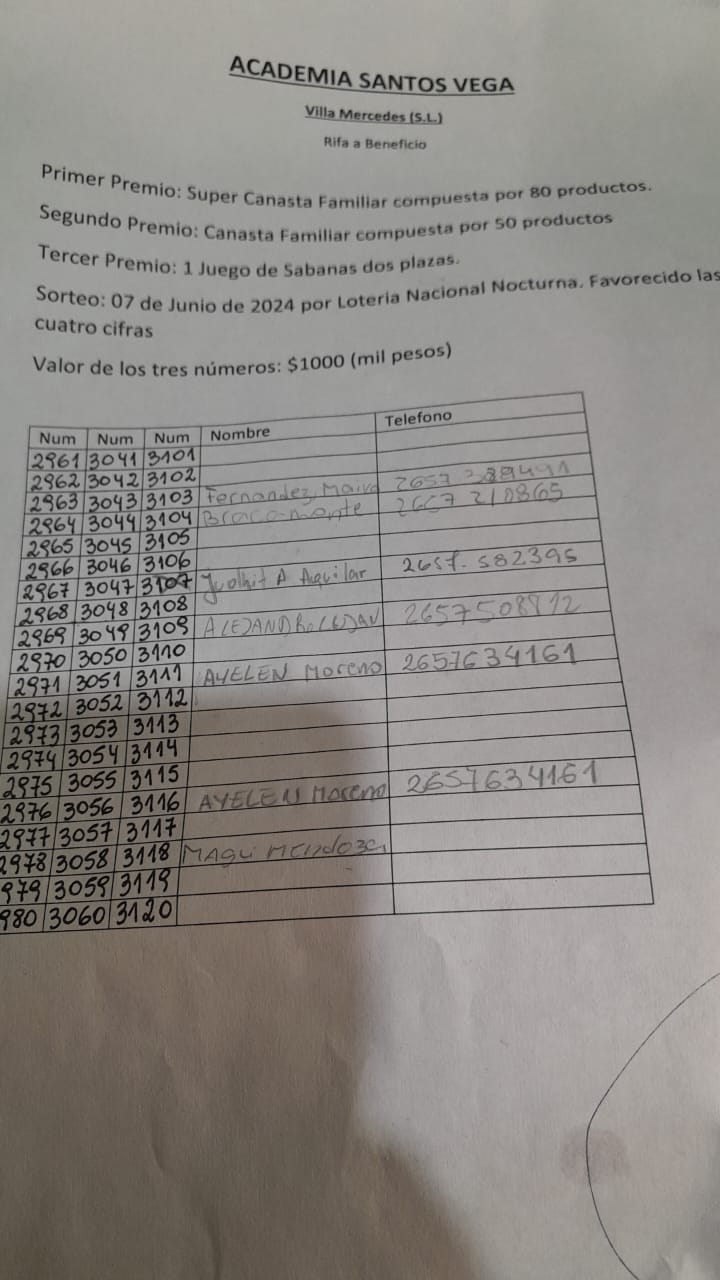 ACADEMIA SANTOS VEGA
Villa Mercedes (S.L.)
Rifa a Beneficio
Primer Premio: Super Canasta Familiar compuesta por 80 productos.
Segundo Premio: Canasta Familiar compuesta por 50 productos
Tercer Premio: 1 Juego de Sabanas dos plazas.
Sorteo: 07 de Junio de 2024 por Loteria Nacional Nocturna. Favorecido las
cuatro cifras
Valor de los tres números: $1000 (mil pesos)
Num Num Num Nombre Telefono
2961 3041 3101
2962 3042 3102
2963 3043 3103 Fernandez
2964 3044 3104 Bracamonte 2657 210865
2965 3045 3105
2966 3046 3106
2967 3047 3107 A Aguilar 2657. 582395
2968 3048 3108
2969 3049 3109
2970 3050 3110
2971 3051 3111 AYELEN Moreno 2657634161
2972 3052 3112
2973 3053 3113
2974 3054 3114
2975 3055 3115
2976 3056 3116 AYELEN Moreno 2657634161
2977 3057 3117
2978 3058 3118 MAGUI Mendoza
979 3059 3119
980 3060 3120